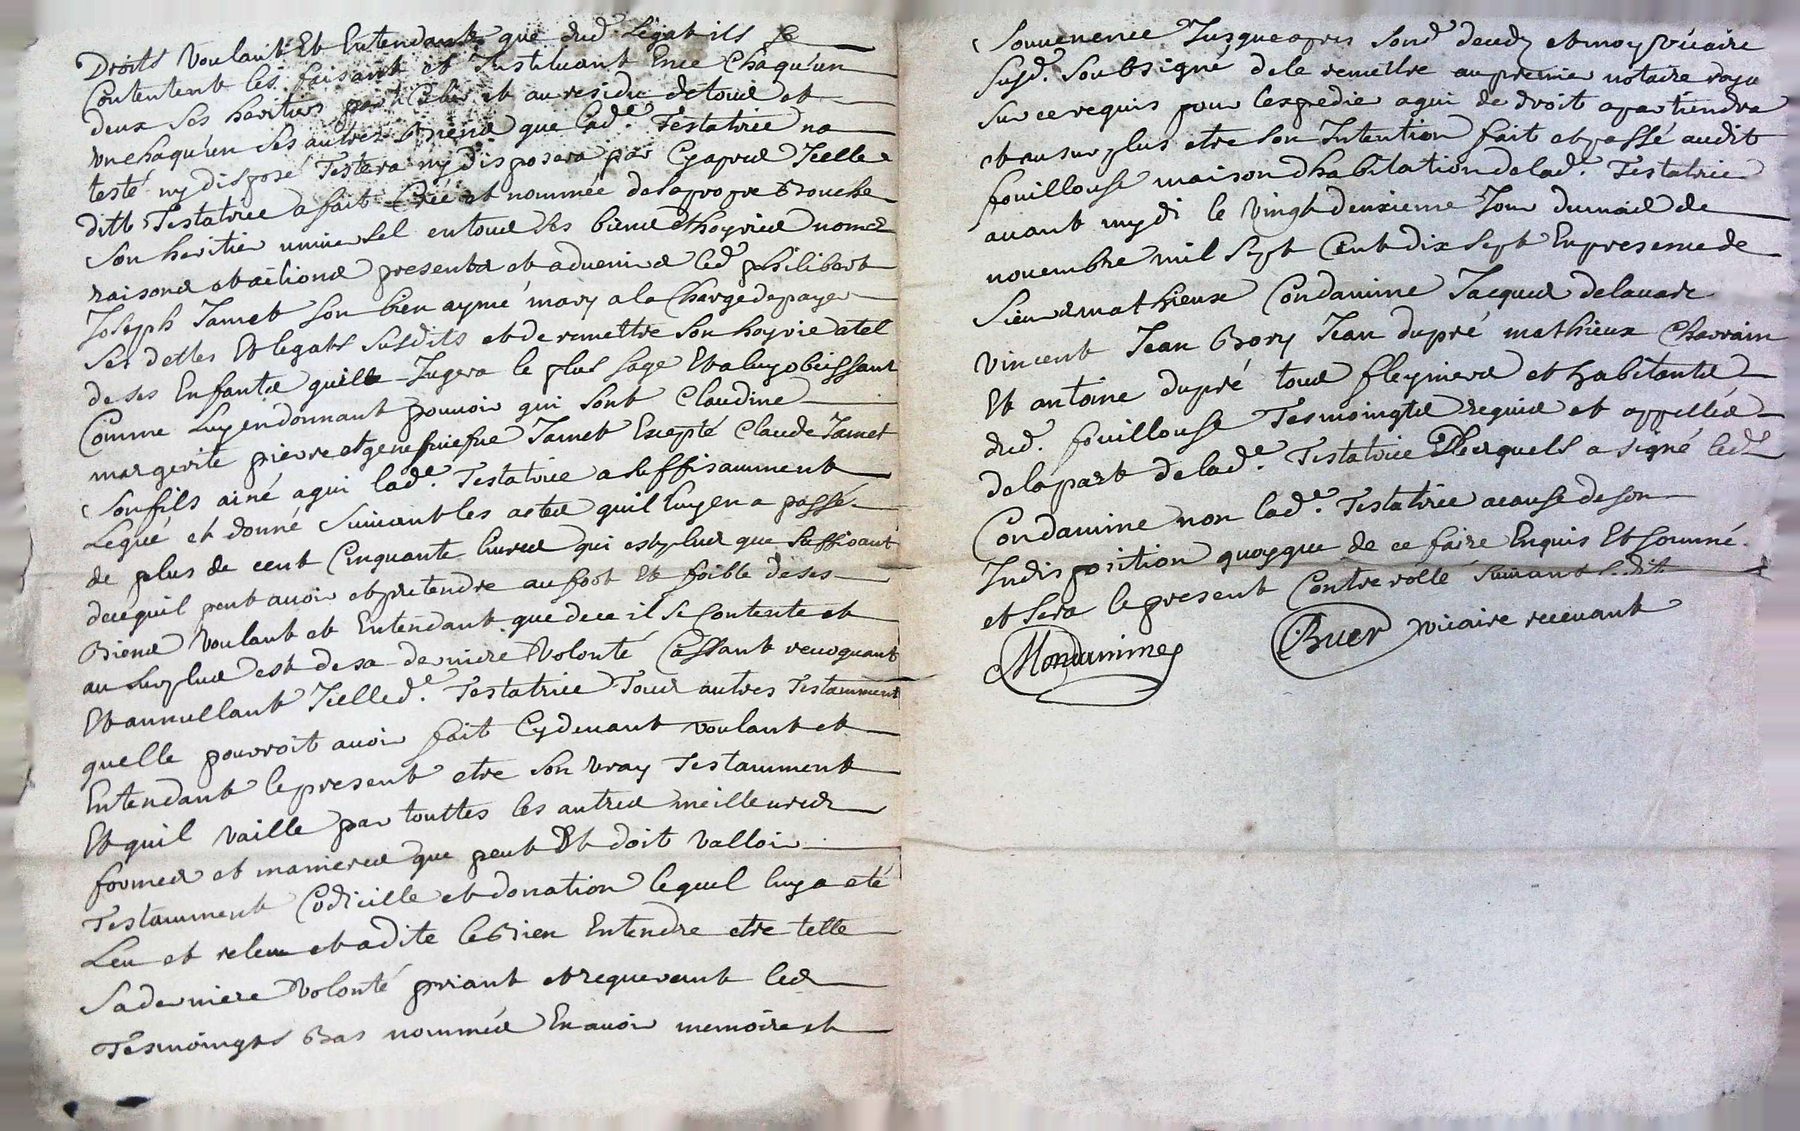 Droits Voulant Et Entendant que dud. Legat ils se
Contentent les faisant et Instituant Eux Chaqu'un
deux ses heritiers particulier et au residu de tous et
un chaqu'un ses autres Biens que lad.e Testatrice na
testé ny disposé Testera ny disposera par Cyaprés Icelle
ditte Testatrice a fait Créé et nommée de sa propre Bouche
Son heritier universel en tous ses biens et hoyries noms
raisons et actions presents et advenirs led philibert
Joseph Jamet son bien aymé mary a la Charge de payer
Ses dettes Et legats susdits et de remettre son hoyrie a tel
de ses Enfants quille Jugera le plus sage Et a luy obeissant
Comme Luy en donnant pouvoir qui sont Claudine
margerite pierre et genefriefue Jamet Excepté Claude Jamet
Son fils ainé a qui lad.e Testatrice a suffisamment
Legué et donné Suivant les actes quil luy en a passé
de plus de cent Cinquante livres qui est plus que suffisant
dece quil peut avoir et pretendre au fort Et foible de ses
Biens Voulant et Entendant que de ce il se Contente et
au surplus est de sa derniere Volonté Cassant revoquant
Et annullant Icelle d.e Testatrice Tous autres Testamment
quelle pourroit avoir fait Cy devant voulant et
Entendant le present etre son vray Testamment
Et quil vaille par touttes les autres meilleures
formes et manieres que peut Et doit valloir
Testamment Codicille et donation lequel luy a eté
Leu et releu et a dite le Bien Entendre etre telle
Sa derniere Volonté priant et requerant led
Tesmoingts Bas nommés En avoir memoire et
Souvenence Jusque apres son d. deuds et moy Vicaire
Susd. Soubsigné de le remettre au premier notaire royu
Sur ce requis pour l'expedie a qui de droit apartiendra
et au surplus etre son Intention fait et passé audit
fouillouse maison dhabitation de lad.e Testatrice
avant mydi le Vingt deuxieme Jour du mois de
novembre mil Sept Cent dix Sept En presence de
Sieurs mathieux Condamine Jacques delavare
Vincent Jean Bory Jean dupré mathieux Chavrain
Et antoine dupré tous fleymers et habitants
dud. fouillouse Tesmoingts requis et appellés
de la part de lad.e Testatrice Desquels a signé led
Condamine non lad.e Testatrice a cause de son
Indisposition quoyque de ce faire Enquis Et sommé
et sera le present Controllé suivant Ledit
MCondamine Buer vicaire recevant